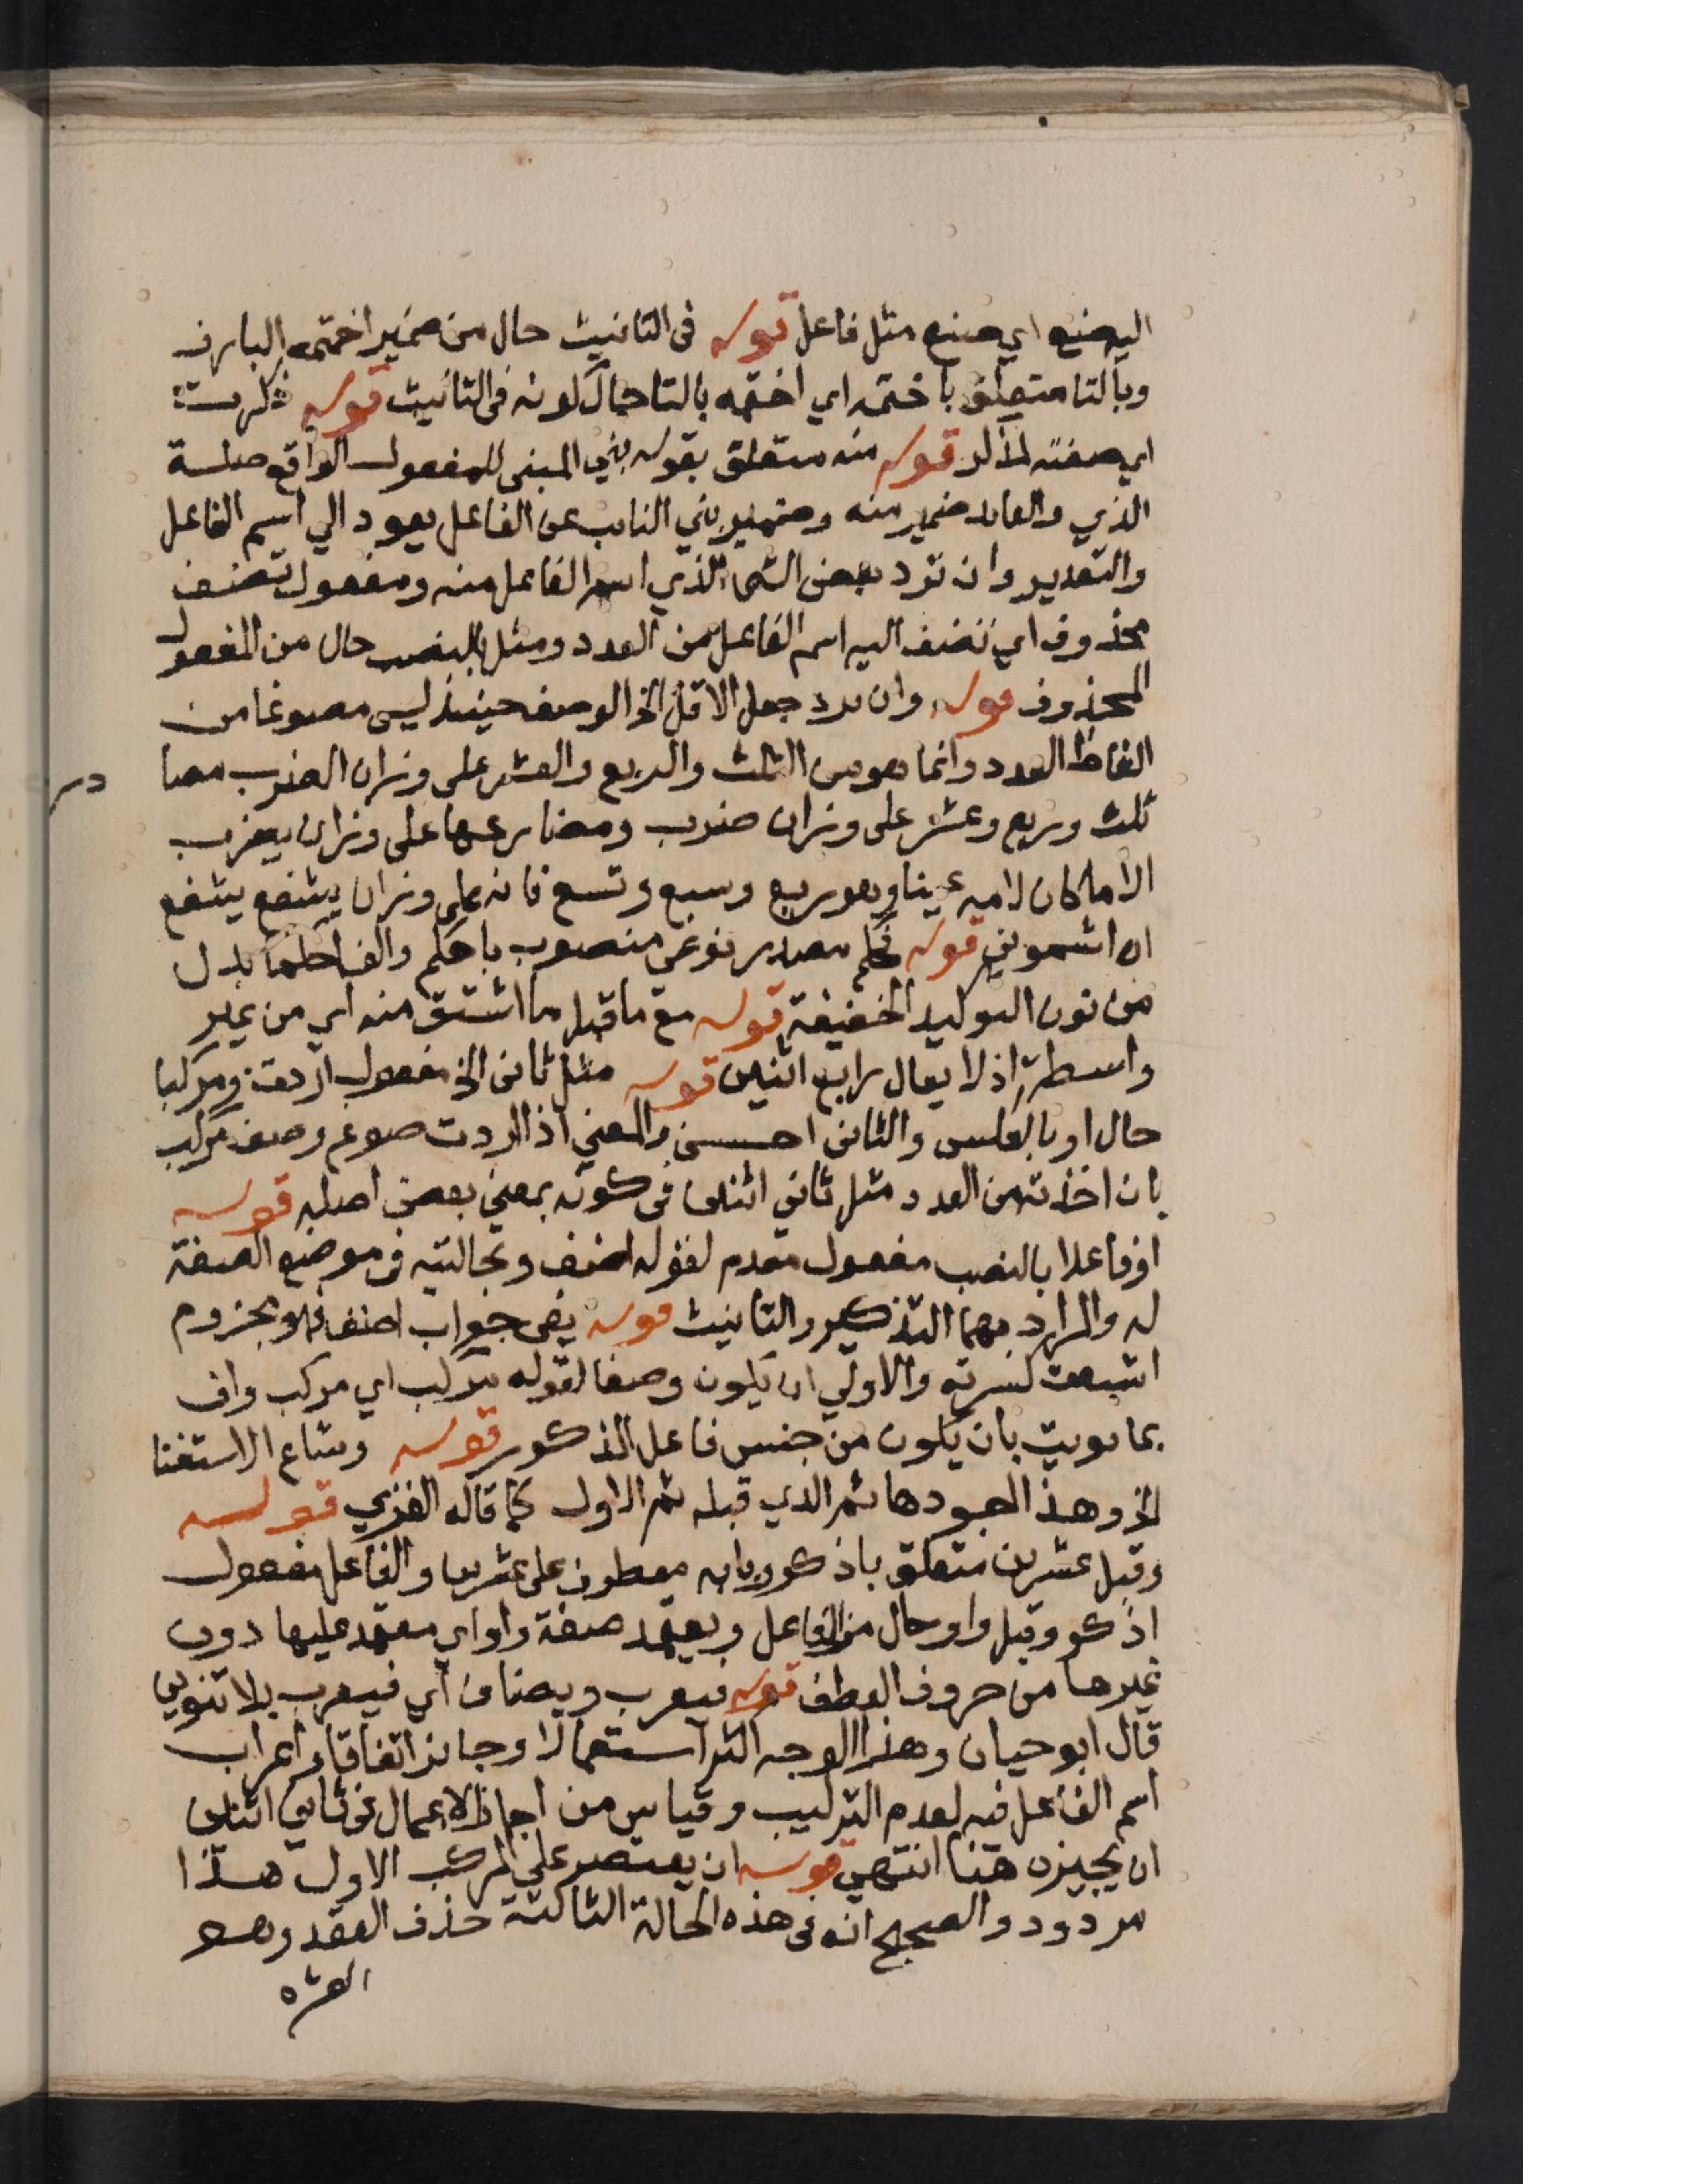 اليه صنع اي صنع مثل فاعل قوله في التانيث حال من ضمير اختمه البارز
وبالتا متعلق باختمه اي اختمه بالتا حال كونه في التانيث قوله ذكرت
اي صفته لمذكر قوله منه متعلق بقوله بني المبني للمفعول الواقع صلة
الذي والعايد ضمير منه وضمير بني النايب عن الفاعل يعود الي اسم الفاعل
والتقدير وان ترد بعض الشي الذي اسم الفاعل منه ومفعول تضف
محذوف اي تضف اليه اسم الفاعل من العدد ومثل بالنصب حال من المفعول
المحذوف قوله وان ترد جعل الاقل الخ الوصف حينيذ ليس مصوغا من
الفاظ العدد وانما هو من الثلث والربع والعشر على وزان الضرب مصا
در
ثلث وربع وعشر على وزان ضرب ومضارعها على وزان يضرب
الا ما كان لامه عينا وهو ربع وسبع وتسع فانه على وزان يشفع يشفع
اه اشموني قوله فحكم مصدر نوعي منصوب باحكم والف احكما بدل
من نون التوكيد الخفيفة قوله مع ما قبل ما اشتق منه اي من غير
واسطة اذ لا يقال رابع اثنين قوله مثل ثاني الخ مفعول اردت ومركبا
حال او بالعكس والثاني احسن والمعني اذا اردت صوغ وصف مركب
بان اخذته من العدد مثل ثاني اثنين في كونه بمعني بعض اصله قوله
او فاعلا بالنصب مفعول مقدم لقوله اضف وبحالتيه في موضع الصفة
له والمراد بهما التذكير والتانيث قوله يفي جواب اضف فهو مجزوم
اشبعت كسرته والاولي ان يكون وصفا لقوله مركب اي مركب واف
بما نويت بان يكون من جنس فاعل المذكور قوله وشاع الاستغنا
الخ وهذا اجودها ثم الذي قبله ثم الاول كما قاله الغزي قوله
وقبل عشرين متعلق باذكر وبابه معطوف على عشرين والفاعل مفعول
اذكر وقبل واو حال من الفاعل ويعتمد صفة واو اي معتمد عليها دون
غيرها من حروف العطف قوله فيعرب ويضاف اي فيعرب بلا تنوين
قال ابو حيان وهذا الوجه اكثر استعمالا وجايز اتفاقا واعراب
اسم الفاعل فيه لعدم التركيب وقياس من اجاز الاعمال في ثاني اثنين
ان يجيزه هنا انتهي قوله ان يقتصر على المركب الاول هذا
مردود والصحيح انه في هذه الحالة الثالثة حذف العقد وهو
العشره